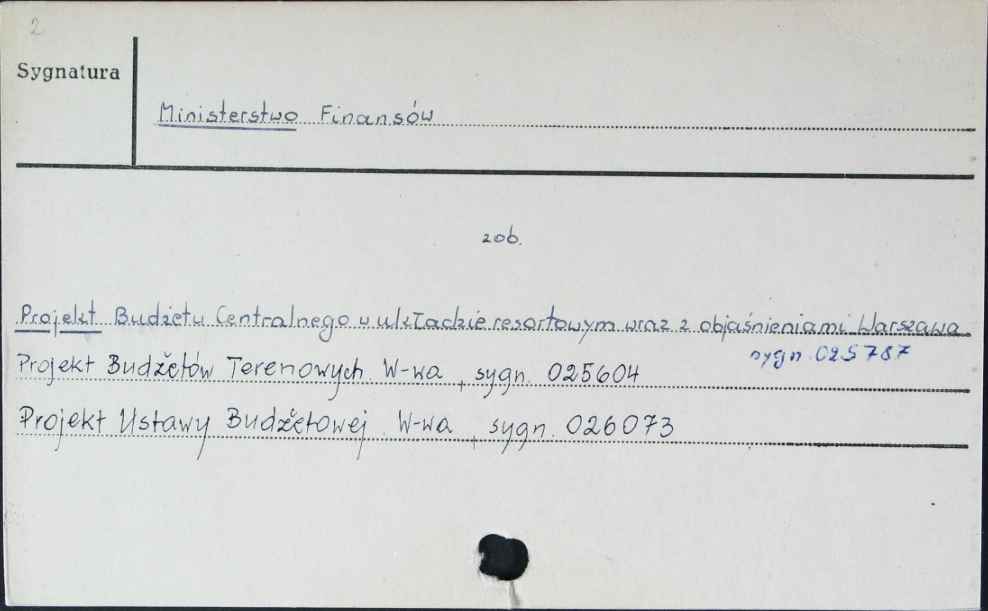 2
Sygnatura
Ministerstwo Finansów
zob.
Projekt Budżetu Centralnego w układzie resortowym wraz z objaśnieniami Warszawa
sygn. 025787
Projekt Budżetów Terenowych W-wa, sygn. 025604
Projekt Ustawy Budżetowej W-wa, sygn. 026073